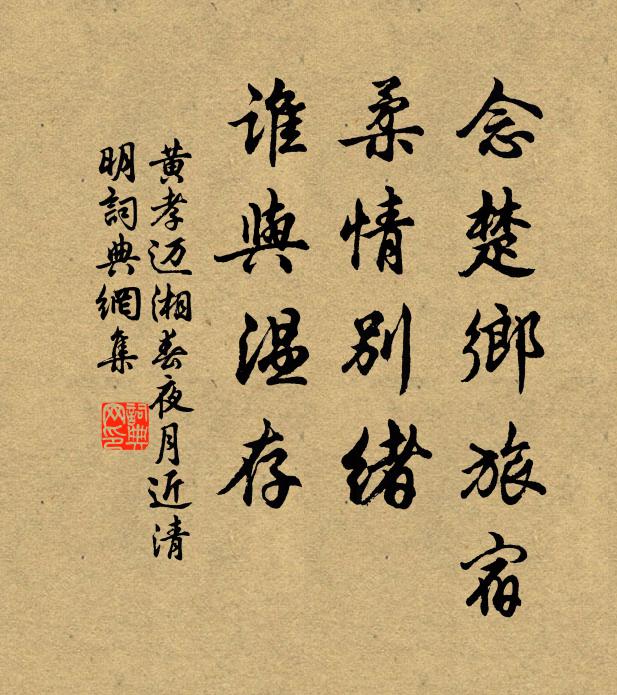 念楚鄉旅宿
柔情別緒
誰與温存
黄孝迈湘春夜月近清
明詞典網集
詞典
网印